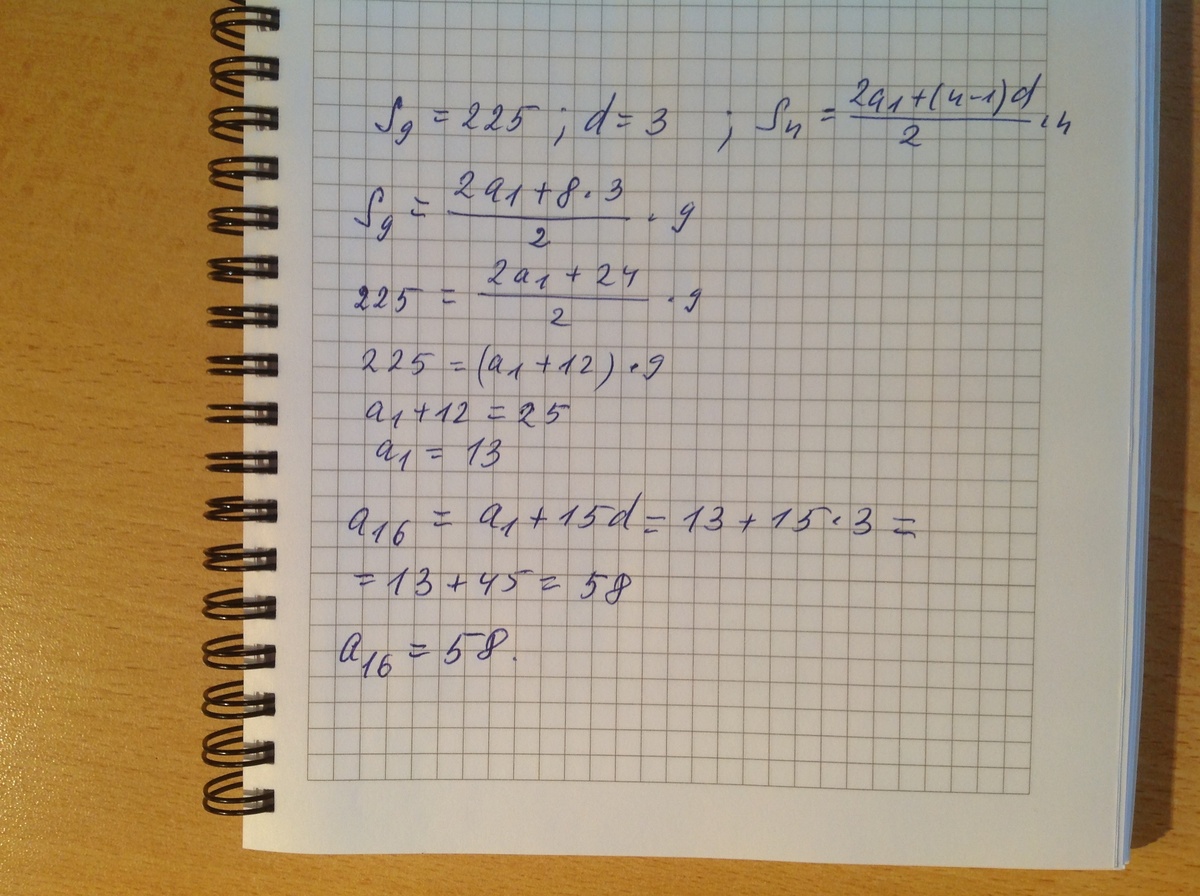 S₉ = 225 ; d = 3 ; Sₙ = (2a₁+(n-1)d)/2 · n
S₉ = (2a₁+8·3)/2 · 9
225 = (2a₁+24)/2 · 9
225 = (a₁+12)·9
a₁+12 = 25
a₁ = 13
a₁₆ = a₁+15d = 13+15·3 =
= 13+45 = 58
a₁₆ = 58.